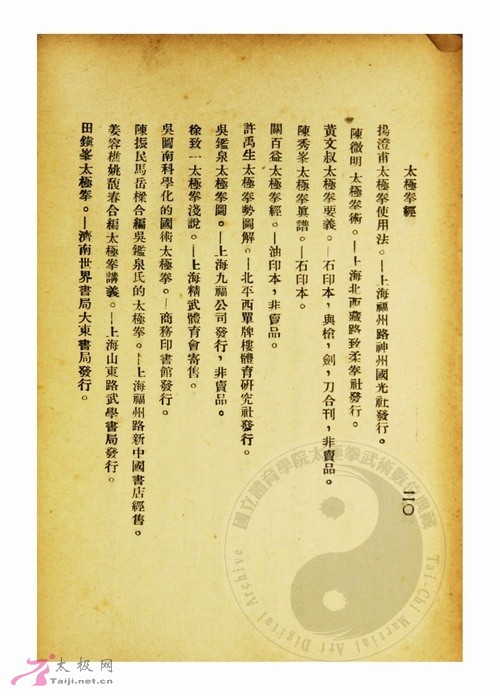 太極拳經
二〇
揚澄甫太極拳使用法。—上海福州路神州國光社發行。
陳微明太極拳術。—上海北西藏路致柔拳社發行。
黃文叔太極拳要義。—石印本，與槍，劍，刀合刊，非賣品。
陳秀峯太極拳真譜。—石印本。
關百益太極拳經。—油印本，非賣品。
許禹生太極拳勢圖解。—北平西單牌樓體育研究社發行。
吳鑑泉太極拳圖。—上海九福公司發行，非賣品。
徐致一太極拳淺說。—上海精武體育會寄售。
吳圖南科學化的國術太極拳。—商務印書館發行。
陳振民馬岳樑合編吳鑑泉氏的太極拳。—上海福州路新中國書店經售。
姜容樵姚馥春合編太極拳講義。—上海山東路武學書局發行。
田鎮峯太極拳。—濟南世界書局大東書局發行。
國立體育學院太極拳武術數位典藏
Tai-Chi Martial Art Digital Archive
太极网
Taiji.net.cn